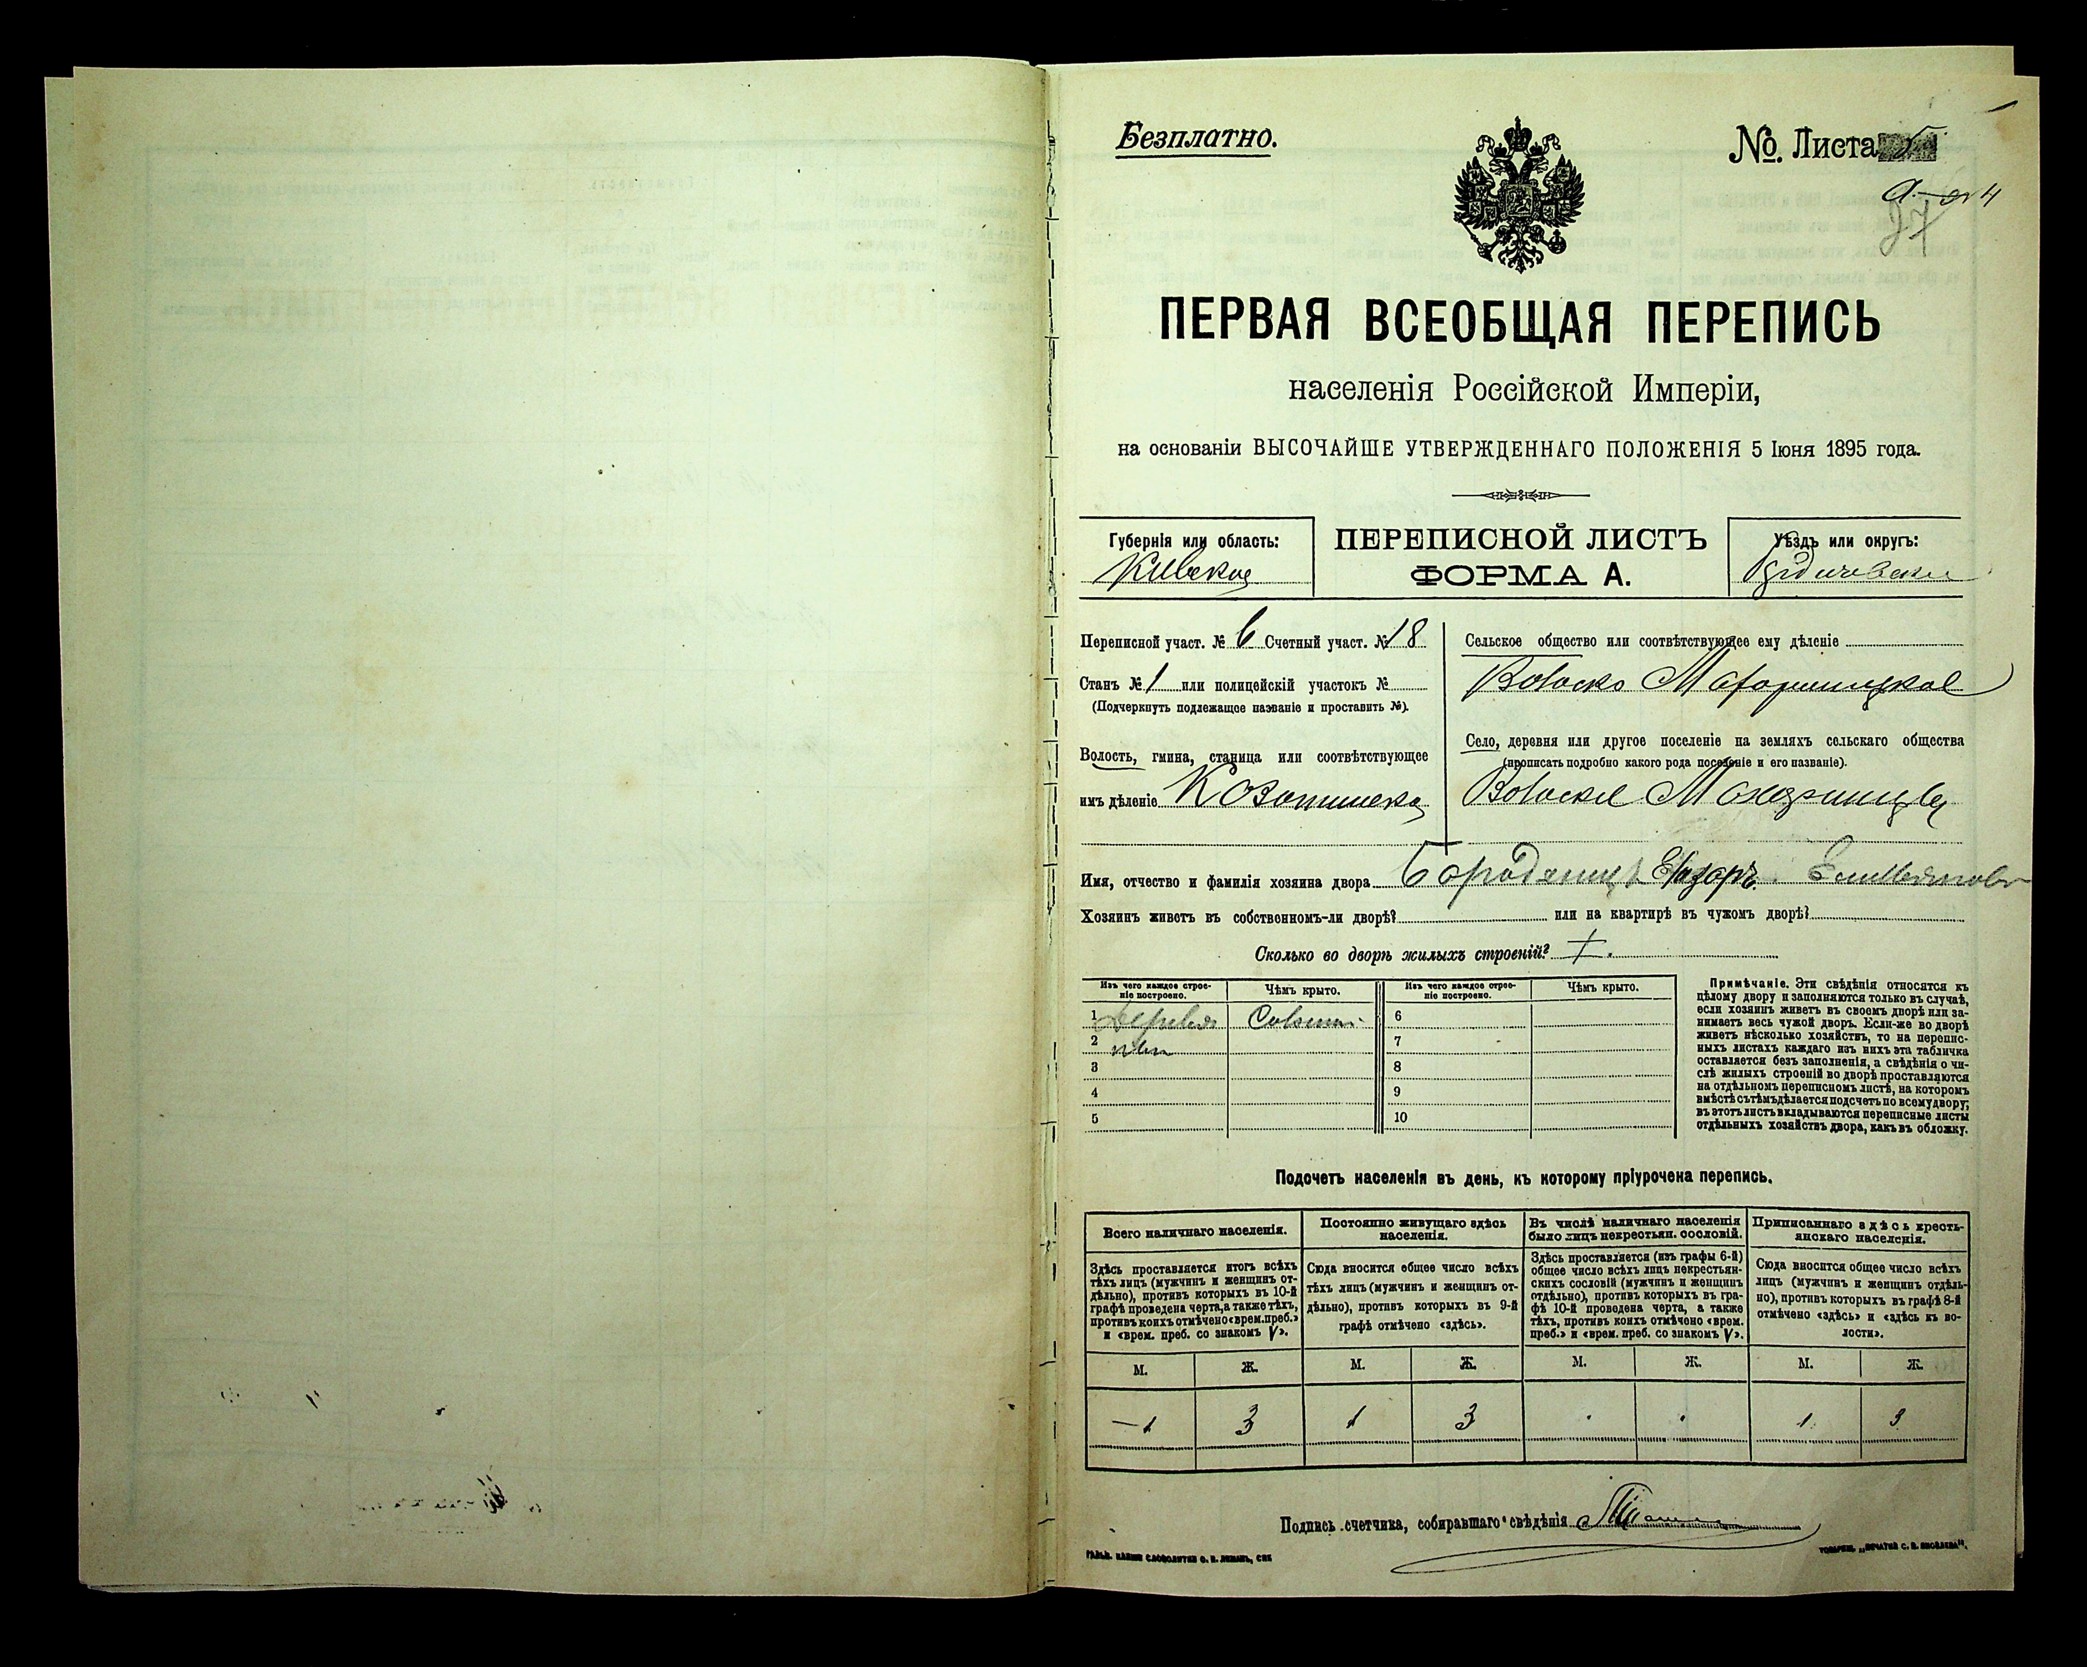 Безплатно.
№. Листа
ПЕРВАЯ ВСЕОБЩАЯ ПЕРЕПИСЬ
населенія Россійской Имперіи,
на основаніи ВЫСОЧАЙШЕ УТВЕРЖДЕННАГО ПОЛОЖЕНІЯ 5 Іюня 1895 года.
Губернія или область:
Кіевская
ПЕРЕПИСНОЙ ЛИСТЪ
ФОРМА А.
Уѣздъ или округъ:
Переписной участ. № 6 Счетный участ. № 18
Станъ № 1 или полицейскій участокъ №
(Подчеркнуть подлежащее названіе и проставить №).
Волость, гмина, станица или соотвѣтствующее
имъ дѣленіе
Сельское общество или соотвѣтствующее ему дѣленіе
Село, деревня или другое поселеніе на земляхъ сельскаго общества
(прописать подробно какого рода поселеніе и его названіе).
Имя, отчество и фамилія хозяина двора
Хозяинъ живетъ въ собственномъ-ли дворѣ? или на квартирѣ въ чужомъ дворѣ?
Сколько во дворѣ жилыхъ строеній?
Изъ чего каждое строе-
ніе построено.
Чѣмъ крыто.
Изъ чего каждое строе-
ніе построено.
Чѣмъ крыто.
1
6
2
7
3
8
4
9
5
10
Примѣчаніе. Эти свѣдѣнія относятся къ
цѣлому двору и заполняются только въ случаѣ,
если хозяинъ живетъ въ своемъ дворѣ или за-
нимаетъ весь чужой дворъ. Если-же во дворѣ
живетъ нѣсколько хозяйствъ, то на перепис-
ныхъ листахъ каждаго изъ нихъ эта табличка
оставляется безъ заполненія, а свѣдѣнія о чи-
слѣ жилыхъ строеній во дворѣ проставляются
на отдѣльномъ переписномъ листѣ, на которомъ
вмѣстѣ съ тѣмъ дѣлается подсчетъ по всему двору;
въ этотъ листъ вкладываются переписные листы
отдѣльныхъ хозяйствъ двора, какъ въ обложку.
Подсчетъ населенія въ день, къ которому пріурочена перепись.
Всего наличнаго населенія.
Постоянно живущаго здѣсь
населенія.
Въ числѣ наличнаго населенія
было лицъ некрестьян. сословій.
Приписаннаго здѣсь кресть-
янскаго населенія.
Здѣсь проставляется итогъ всѣхъ
тѣхъ лицъ (мужчинъ и женщинъ от-
дѣльно), противъ которыхъ въ 10-й
графѣ проведена черта, а также тѣхъ,
противъ коихъ отмѣчено «врем. преб.»
и «врем. преб. со знакомъ V».
Сюда вносится общее число всѣхъ
тѣхъ лицъ (мужчинъ и женщинъ от-
дѣльно), противъ которыхъ въ 9-й
графѣ отмѣчено «здѣсь».
Здѣсь проставляется (изъ графы 6-й)
общее число всѣхъ лицъ некрестьян-
скихъ сословій (мужчинъ и женщинъ
отдѣльно), противъ которыхъ въ гра-
фѣ 10-й проведена черта, а также
тѣхъ, противъ коихъ отмѣчено «врем.
преб.» и «врем. преб. со знакомъ V».
Сюда вносится общее число всѣхъ
лицъ (мужчинъ и женщинъ отдѣль-
но), противъ которыхъ въ графѣ 8-й
отмѣчено «здѣсь» и «здѣсь къ во-
лости».
М. Ж. М. Ж. М. Ж. М. Ж.
1 3 1 3 1 3
Подпись счетчика, собиравшаго свѣдѣнія